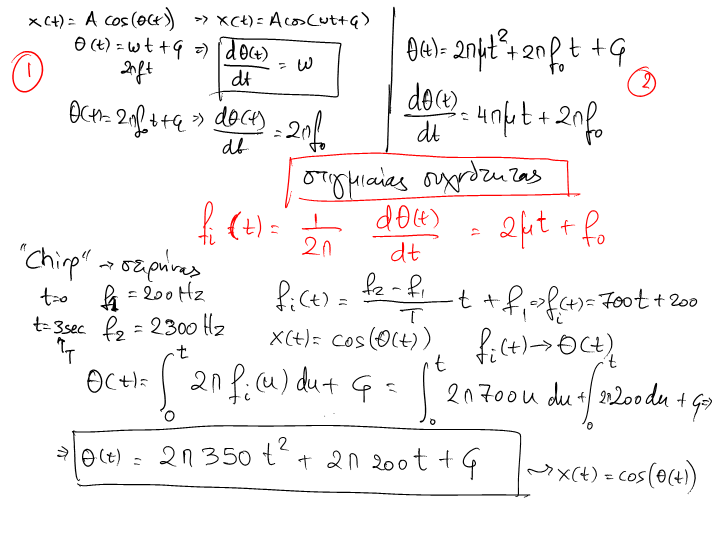 x(t) = A cos(θ(t)) → x(t) = A cos(ωt+φ)
①
θ(t) = ωt + φ ⇒ dθ(t)/dt = ω
2πft
θ(t) = 2πf₀t + φ ⇒ dθ(t)/dt = 2πf₀
θ(t) = 2πμt² + 2πf₀t + φ
②
dθ(t)/dt = 4πμt + 2πf₀
στιγμιαίας συχνότητας
fᵢ(t) = 1/2π dθ(t)/dt = 2μt + f₀
"Chirp" → σειρήνας
t=0 f₁ = 200 Hz
t=3sec f₂ = 2300 Hz
T
fᵢ(t) = (f₂ - f₁)/T t + f₁ ⇒ fᵢ(t) = 700t + 200
x(t) = cos(θ(t)) fᵢ(t) → θ(t)
θ(t) = ∫₀ᵗ 2π fᵢ(u) du + φ = ∫₀ᵗ 2π700u du + ∫₀ᵗ 2π200 du + φ ⇒
⇒ θ(t) = 2π 350 t² + 2π 200t + φ → x(t) = cos(θ(t))